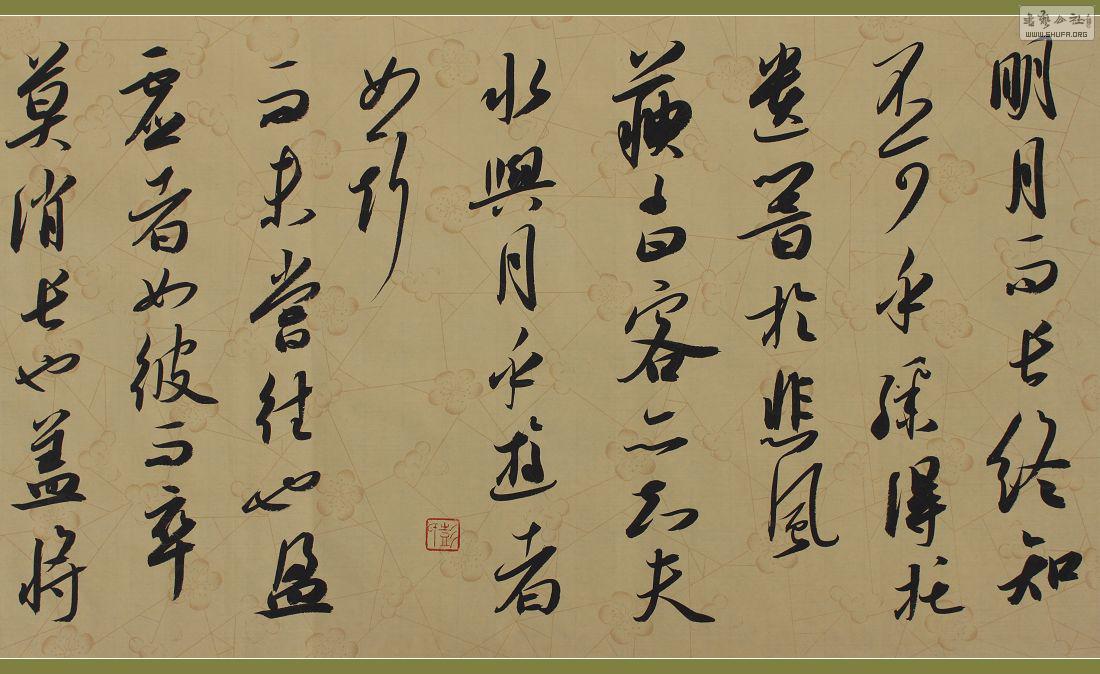 明月而長終知
不可乎驟得托
遺響於悲風
蘇子曰客亦知夫
水與月乎逝者
如斯
而未嘗往也盈
虛者如彼而卒
莫消長也盖將
書藝公社
WWW.SHUFA.ORG